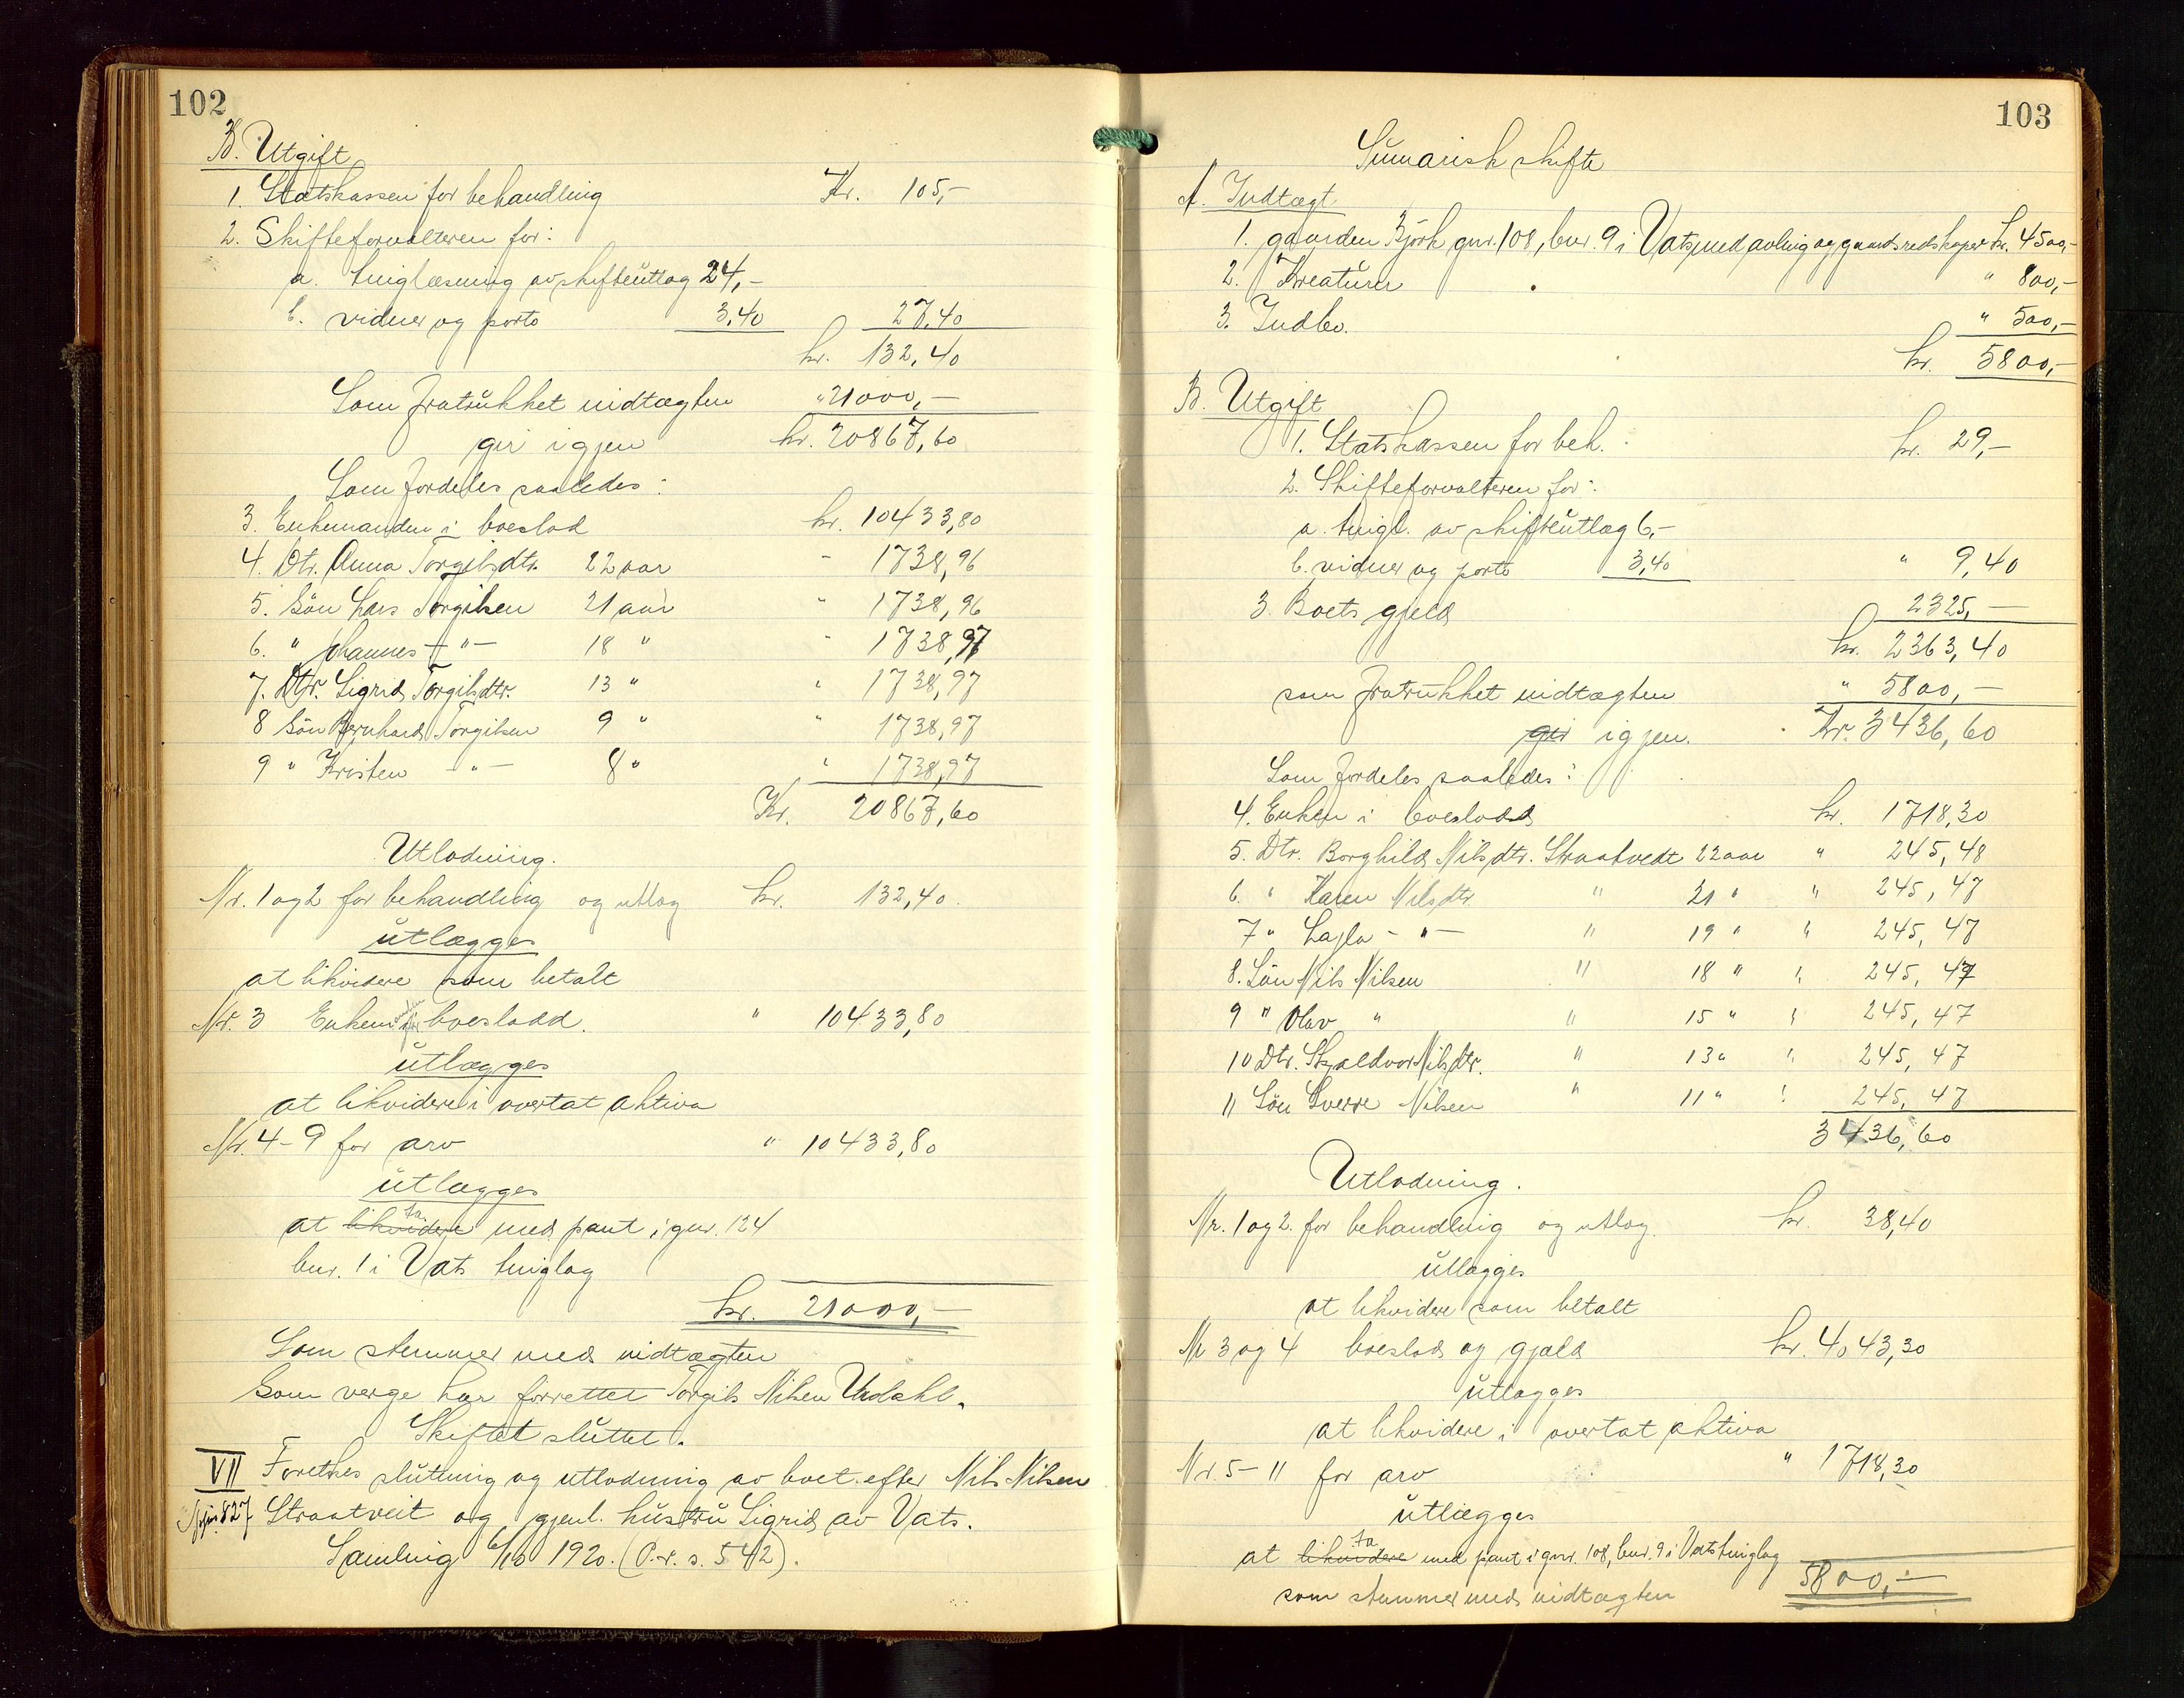 102
B. Utgift
1. Statskassen for behandling Kr. 105,-
2. Skifteforvalteren for:
a. tinglæsning av skifteutlæg 24,-
b. vidner og porto 3,40 27,40
kr. 132,40
Som fratrukket indtægten " 21000,-
gir igjen kr. 20867,60
Som fordeles saaledes:
3. Enkemanden i boeslod kr. 10433,80
4. Dtr. Anna Torgilsdtr. 22 aar " 1738,96
5. Sön Lars Torgilsen 21 aar " 1738,96
6. " Johannes - " - 18 " " 1738,97
7. Dtr. Sigrid Torgilsdtr. 13 " " 1738,97
8 Sön Bernhard Torgilsen 9 " " 1738,97
9 " Kristen - " - 8 " " 1738,97
Kr. 20867,60
Utlodning.
Nr. 1 og 2 for behandling og utlæg kr. 132,40.
utlægges
at likvidere som betalt
Nr. 3 Enkem. boeslodd. " 10433,80
utlægges
at likvidere i overtat aktiva
Nr. 4-9 for arv " 10433,80
utlægges
at likvidere ta med pant i gnr. 124
bnr. 1 i Vats tinglag
kr. 21000,-
Som stemmer med indtægten
Som verge har forrettet Torgils Nilsen Undahl.
Skiftet sluttet.
VII Foretkes slutning og utlodning av boet efter Nils Nilsen
827 Straatveit og gjenl. hustru Sigrid av Vats.
Samling 6/10 1920. (P.r. s. 542).
103
Sumarisk skifte
A. Indtægt
1. gaarden Björk gnr. 108, bnr. 9 i Vats, med avling og gaardsredskaper kr. 4500,-
2. Kreaturer " 800,-
3. Indbo. " 500,-
kr. 5800,-
B. Utgift
1. Statskassen for beh. kr. 29,-
2. Skifteforvalteren for:
a. tingl. av skifteutlæg 6,-
b. vidner og porto 3,40 " 9,40
3. Boets gjeld 2325,-
kr. 2363,40
som fratrukket indtægten " 5800,-
gir igjen. Kr. 3436,60
Som fordeles saaledes:
4. Enken i boeslodd kr. 1718,30
5. Dtr. Borghild Nilsdtr. Straatvedt 22 aar " 245,48
6. " Karen Nilsdtr. " 21 " " 245,47
7 " Lajla - " - " 19 " " 245,47
8. Sön Nils Nilsen " 18 " " 245,47
9 " Olav " " 15 " " 245,47
10 Dtr. Skjaldvor Nilsdtr. " 13 " " 245,47
11 Sön Sverre Nilsen " 11 " " 245,47
3436,60
Utlodning.
Nr. 1 og 2. for behandling og utlæg. kr. 38,40
utlægges
at likvidere som betalt
Nr 3 og 4 boeslod og gjæld kr. 4,043,30
utlægges
at likvidere i overtat aktiva
Nr. 5-11 for arv " 1718,30
utlægges
at likvidere ta med pant i gnr. 108, bnr. 9 i Vats tinglag
5800,-
som stemmer med indtægten